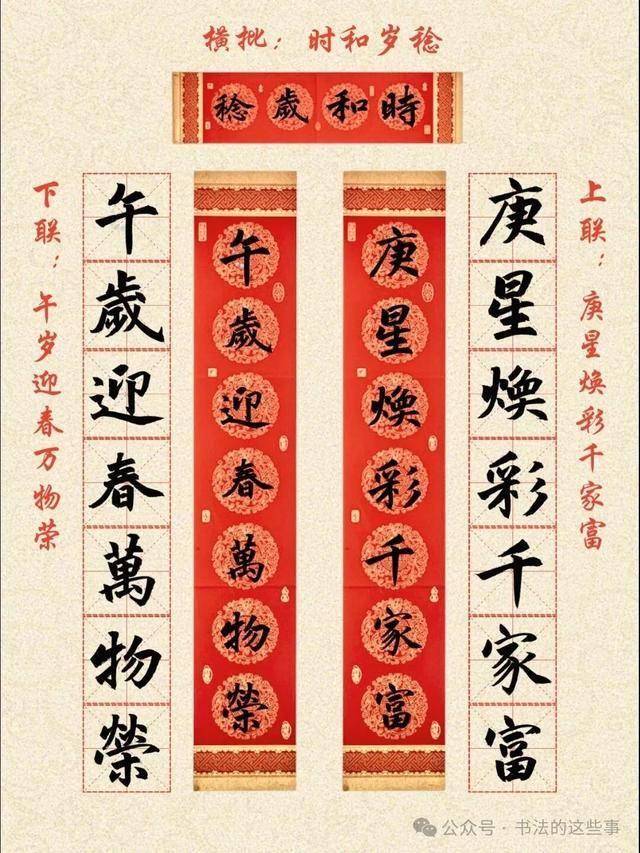 横批：时和岁稔
時和歲稔
上联：庚星焕彩千家富
庚星煥彩千家富
庚星煥彩千家富
午歲迎春萬物榮
午歲迎春萬物榮
下联：午岁迎春万物荣
公众号·书法的这些事